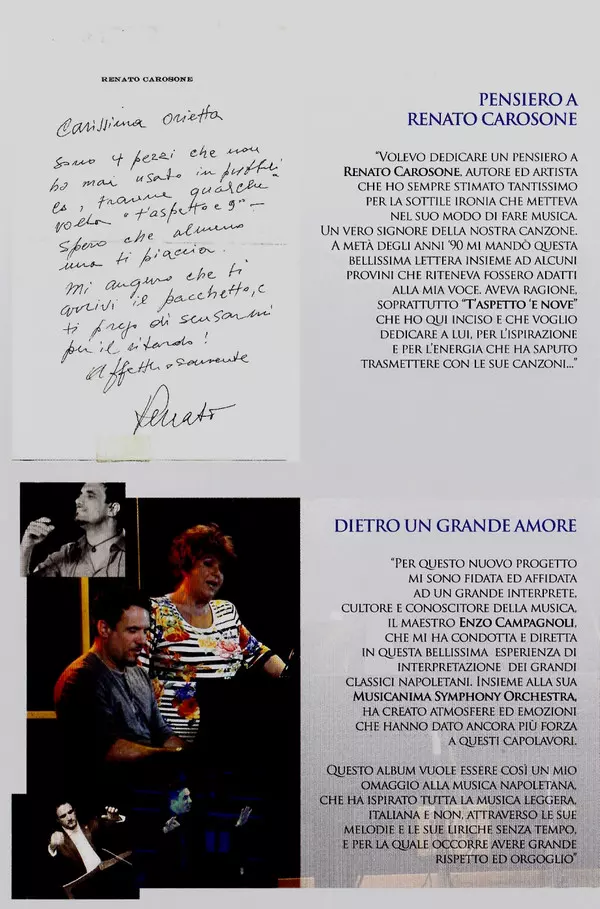 RENATO CAROSONE
Carissima Orietta
sono 4 pezzi che non
ho mai usato in pubbli
co, tranne qualche
volta "t'aspetto e 9" -
Spero che almeno
una ti piaccia.
Mi auguro che ti
arrivi il pacchetto, e
ti prego di scusarmi
per il ritardo!
Affettuosamente
Renato
PENSIERO A
RENATO CAROSONE
"VOLEVO DEDICARE UN PENSIERO A
RENATO CAROSONE, AUTORE ED ARTISTA
CHE HO SEMPRE STIMATO TANTISSIMO
PER LA SOTTILE IRONIA CHE METTEVA
NEL SUO MODO DI FARE MUSICA.
UN VERO SIGNORE DELLA NOSTRA CANZONE.
A METÀ DEGLI ANNI '90 MI MANDÒ QUESTA
BELLISSIMA LETTERA INSIEME AD ALCUNI
PROVINI CHE RITENEVA FOSSERO ADATTI
ALLA MIA VOCE. AVEVA RAGIONE,
SOPRATTUTTO "T'ASPETTO 'E NOVE"
CHE HO QUI INCISO E CHE VOGLIO
DEDICARE A LUI, PER L'ISPIRAZIONE
E PER L'ENERGIA CHE HA SAPUTO
TRASMETTERE CON LE SUE CANZONI..."
DIETRO UN GRANDE AMORE
"PER QUESTO NUOVO PROGETTO
MI SONO FIDATA ED AFFIDATA
AD UN GRANDE INTERPRETE,
CULTORE E CONOSCITORE DELLA MUSICA,
IL MAESTRO ENZO CAMPAGNOLI,
CHE MI HA CONDOTTA E DIRETTA
IN QUESTA BELLISSIMA ESPERIENZA DI
INTERPRETAZIONE DEI GRANDI
CLASSICI NAPOLETANI. INSIEME ALLA SUA
MUSICANIMA SYMPHONY ORCHESTRA,
HA CREATO ATMOSFERE ED EMOZIONI
CHE HANNO DATO ANCORA PIÙ FORZA
A QUESTI CAPOLAVORI.
QUESTO ALBUM VUOLE ESSERE COSÌ UN MIO
OMAGGIO ALLA MUSICA NAPOLETANA,
CHE HA ISPIRATO TUTTA LA MUSICA LEGGERA,
ITALIANA E NON, ATTRAVERSO LE SUE
MELODIE E LE SUE LIRICHE SENZA TEMPO,
E PER LA QUALE OCCORRE AVERE GRANDE
RISPETTO ED ORGOGLIO"